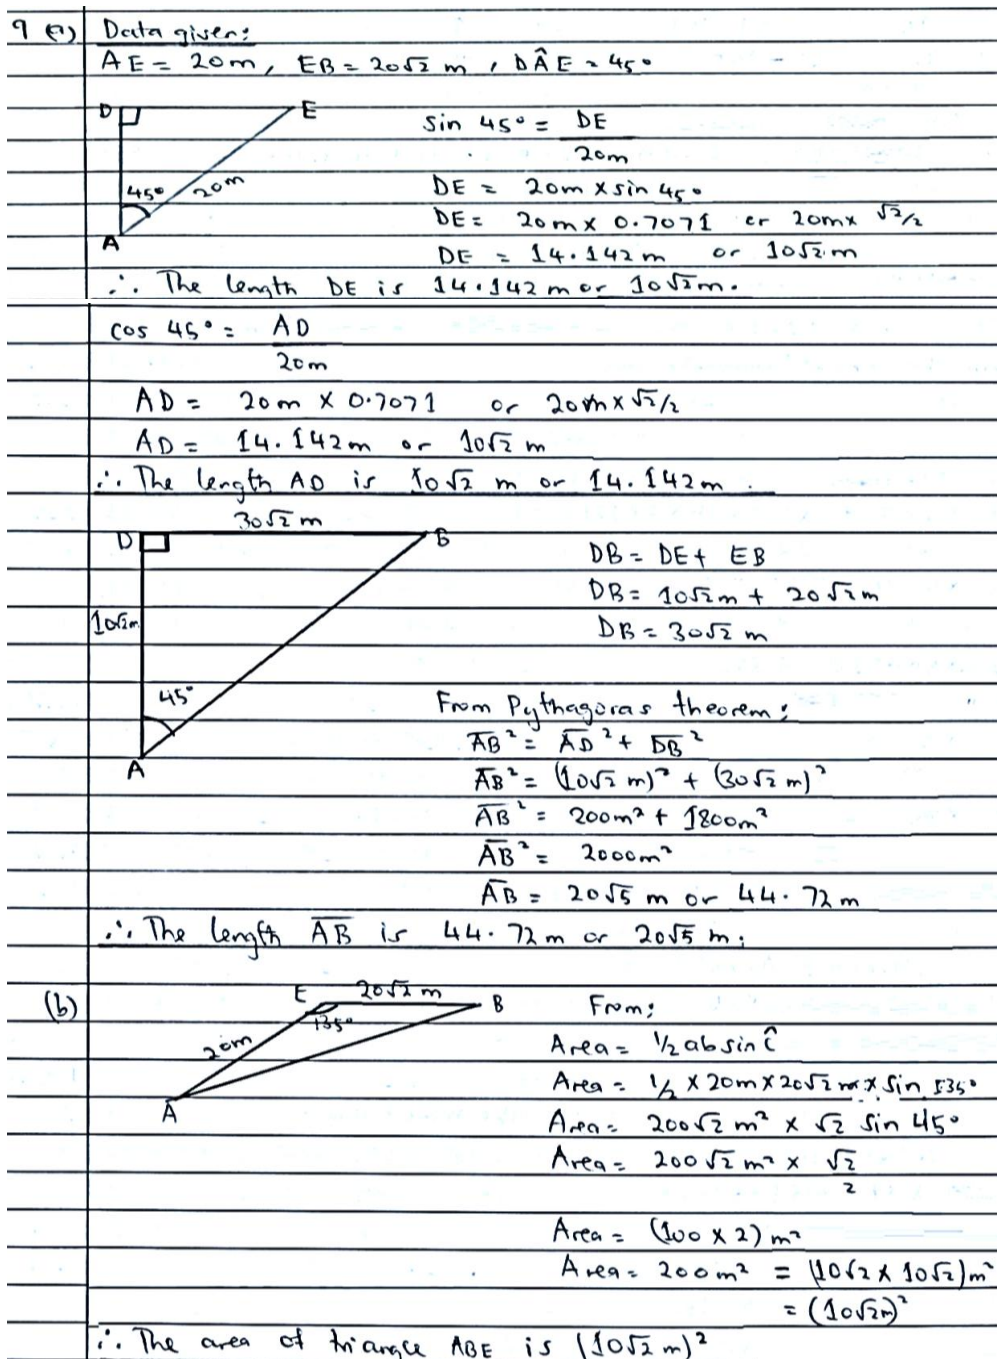 9 (a) Data given:
AE = 20m, EB = 20√2 m, DÂE = 45°
D E
45° 20m
A
sin 45° = DE
20m
DE = 20m x sin 45°
DE = 20m x 0.7071 or 20m x √2/2
DE = 14.142 m or 10√2 m
∴ The length DE is 14.142 m or 10√2 m.
cos 45° = AD
20m
AD = 20m x 0.7071 or 20m x √2/2
AD = 14.142m or 10√2 m
∴ The length AD is 10√2 m or 14.142m.
30√2 m
D B
10√2m
45°
A
DB = DE + EB
DB = 10√2m + 20√2m
DB = 30√2 m
From Pythagoras theorem:
A̅B̅² = A̅D̅² + D̅B̅²
A̅B̅² = (10√2 m)² + (30√2 m)²
A̅B̅² = 200m² + 1800m²
A̅B̅² = 2000m²
A̅B̅ = 20√5 m or 44.72 m
∴ The length A̅B̅ is 44.72 m or 20√5 m;
(b) E 20√2 m B
135°
20m
A
From:
Area = 1/2 ab sin Ĉ
Area = 1/2 x 20m x 20√2 m x sin 135°
Area = 200√2 m² x √2 sin 45°
Area = 200√2 m² x √2
2
Area = (100 x 2) m²
Area = 200m² = (10√2 x 10√2)m²
= (10√2m)²
∴ The area of triangle ABE is (10√2 m)²